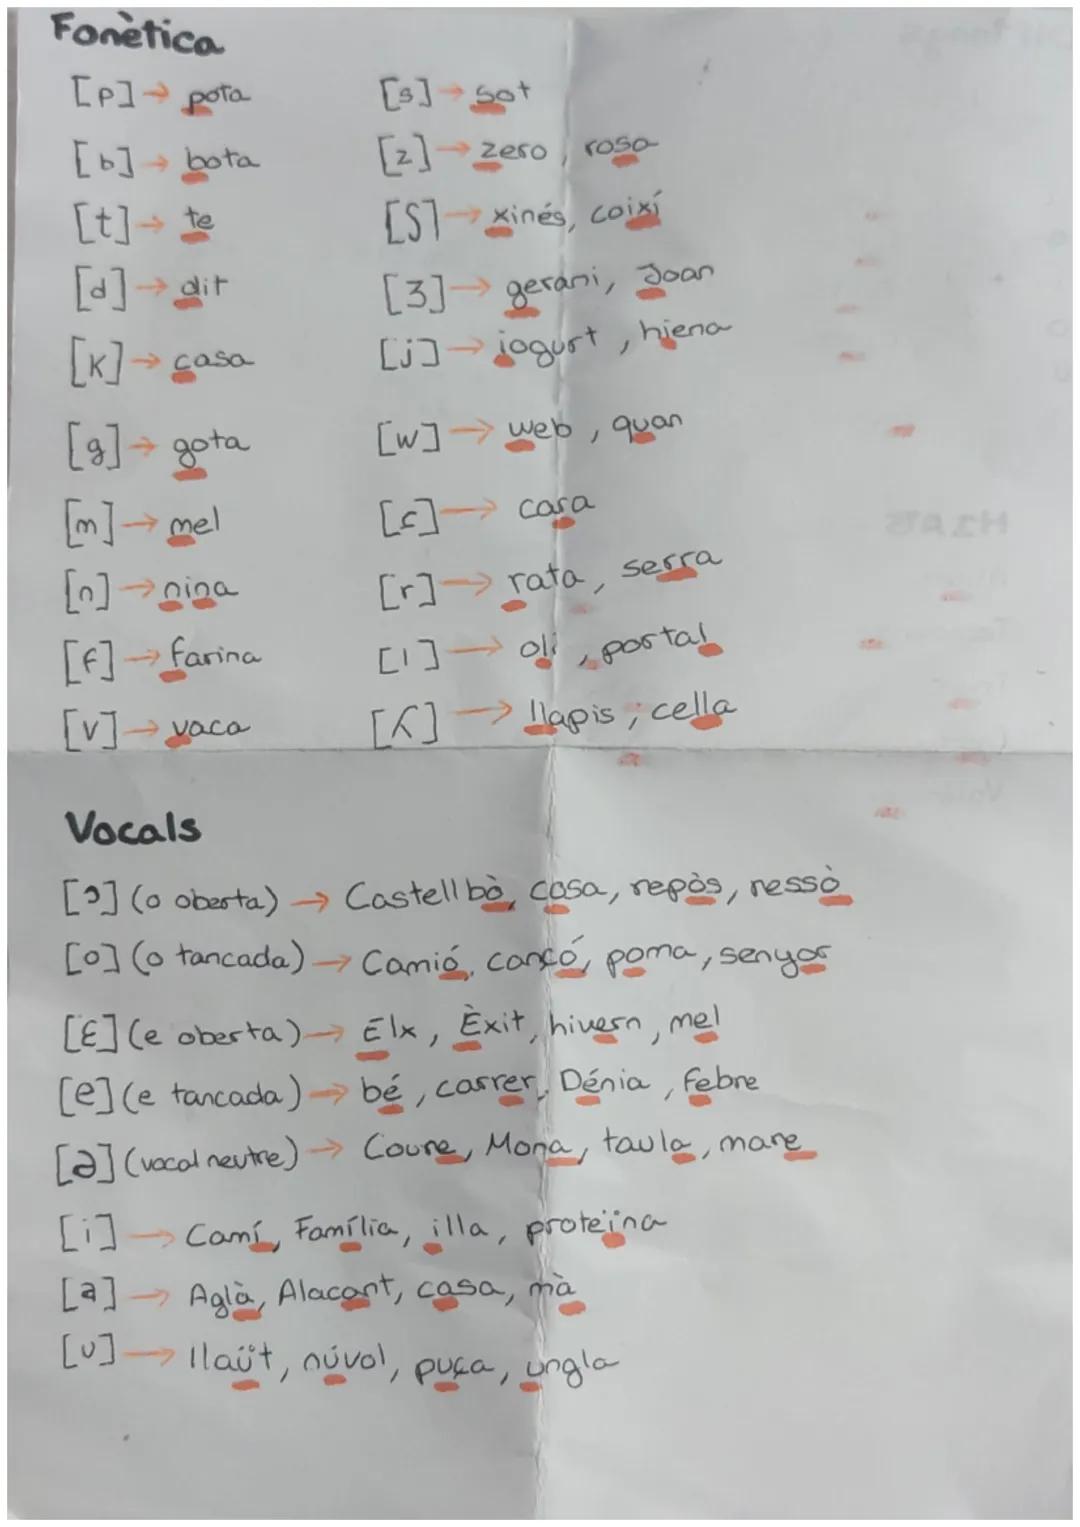 Fonètica
[p] → pota
[b] → bota
[t] → te
[d] → dit
[k] → casa
[g] → gota
[m] → mel
[n] → nina
[f] → farina
[v] → vaca
[s] → sot
[z] → zero, rosa
[ʃ] → xinés, coixí
[ʒ] → gerani, Joan
[j] → iogurt, hiena
[w] → web, quan
[ɾ] → cara
[r] → rata, serra
[l] → oli, portal
[ʎ] → llapis, cella
Vocals
[ɔ] (o oberta) → Castellbò, cosa, repòs, ressò
[o] (o tancada) → Camió, cançó, poma, senyor
[ɛ] (e oberta) → Elx, Èxit, hivern, mel
[e] (e tancada) → bé, carrer, Dénia, febre
[ə] (vocal neutre) → Coure, Mona, taula, mare
[i] → Camí, Família, illa, proteïna
[a] → Aglà, Alacant, casa, mà
[u] → llaüt, núvol, puça, ungla